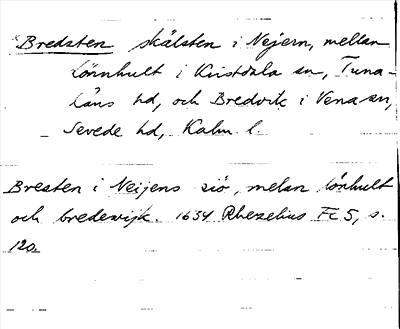 Bredsten skälsten i Nejern, mellan
Lönnhult i Kristdala sn, Tuna-
Läns hd, och Bredvik i Vena sn,
Sevede hd, Kalm. l.
Bresten i Neijens siö, melan lönhult
och bredewijk. 1634 Rhezelius Fc5, s.
120